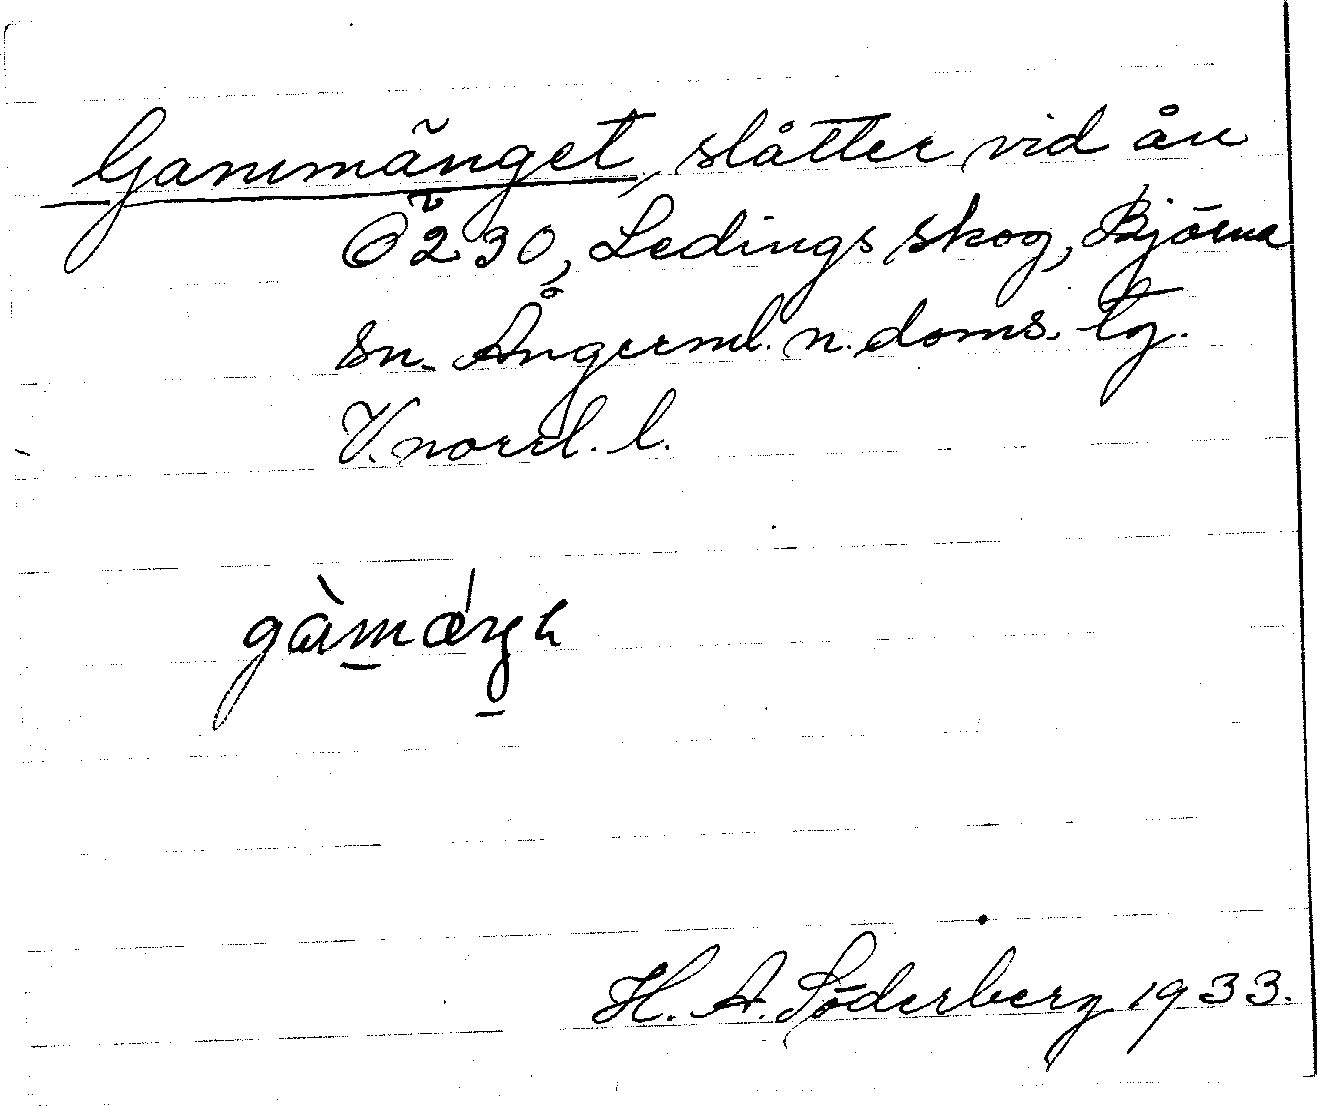 Gammänget, slåtter vid ån
Ö 230, Ledings skog, Björna
sn. Ångerml. n. doms. tg.
V. norrl. l.
H. A. Söderberg 1933.